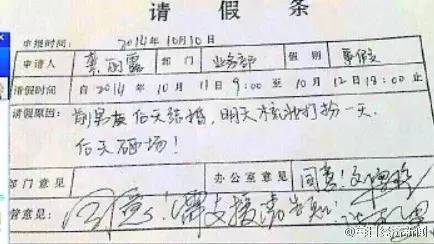 请假条
申报时间: 2014年10月10日
申请人 龚丽露 部门 业务部 假别 事假
请假时间 自2014年10月11日9:00至10月12日18:00止
请假原因: 前男友后天结婚,明天梳妆打扮一天.
后天砸场!
部门意见 办公室意见 同意!
管意见: 同意!需支援请告知!